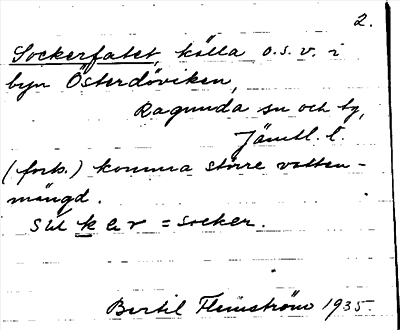 2.
Sockerfatet, källa o.s.v. i
byn Österdöviken,
Ragunda sn och tg,
Jämtl. l.
(forts.) komma större vatten-
mängd.
su k e r = socker.
Bertil Flemström 1935.